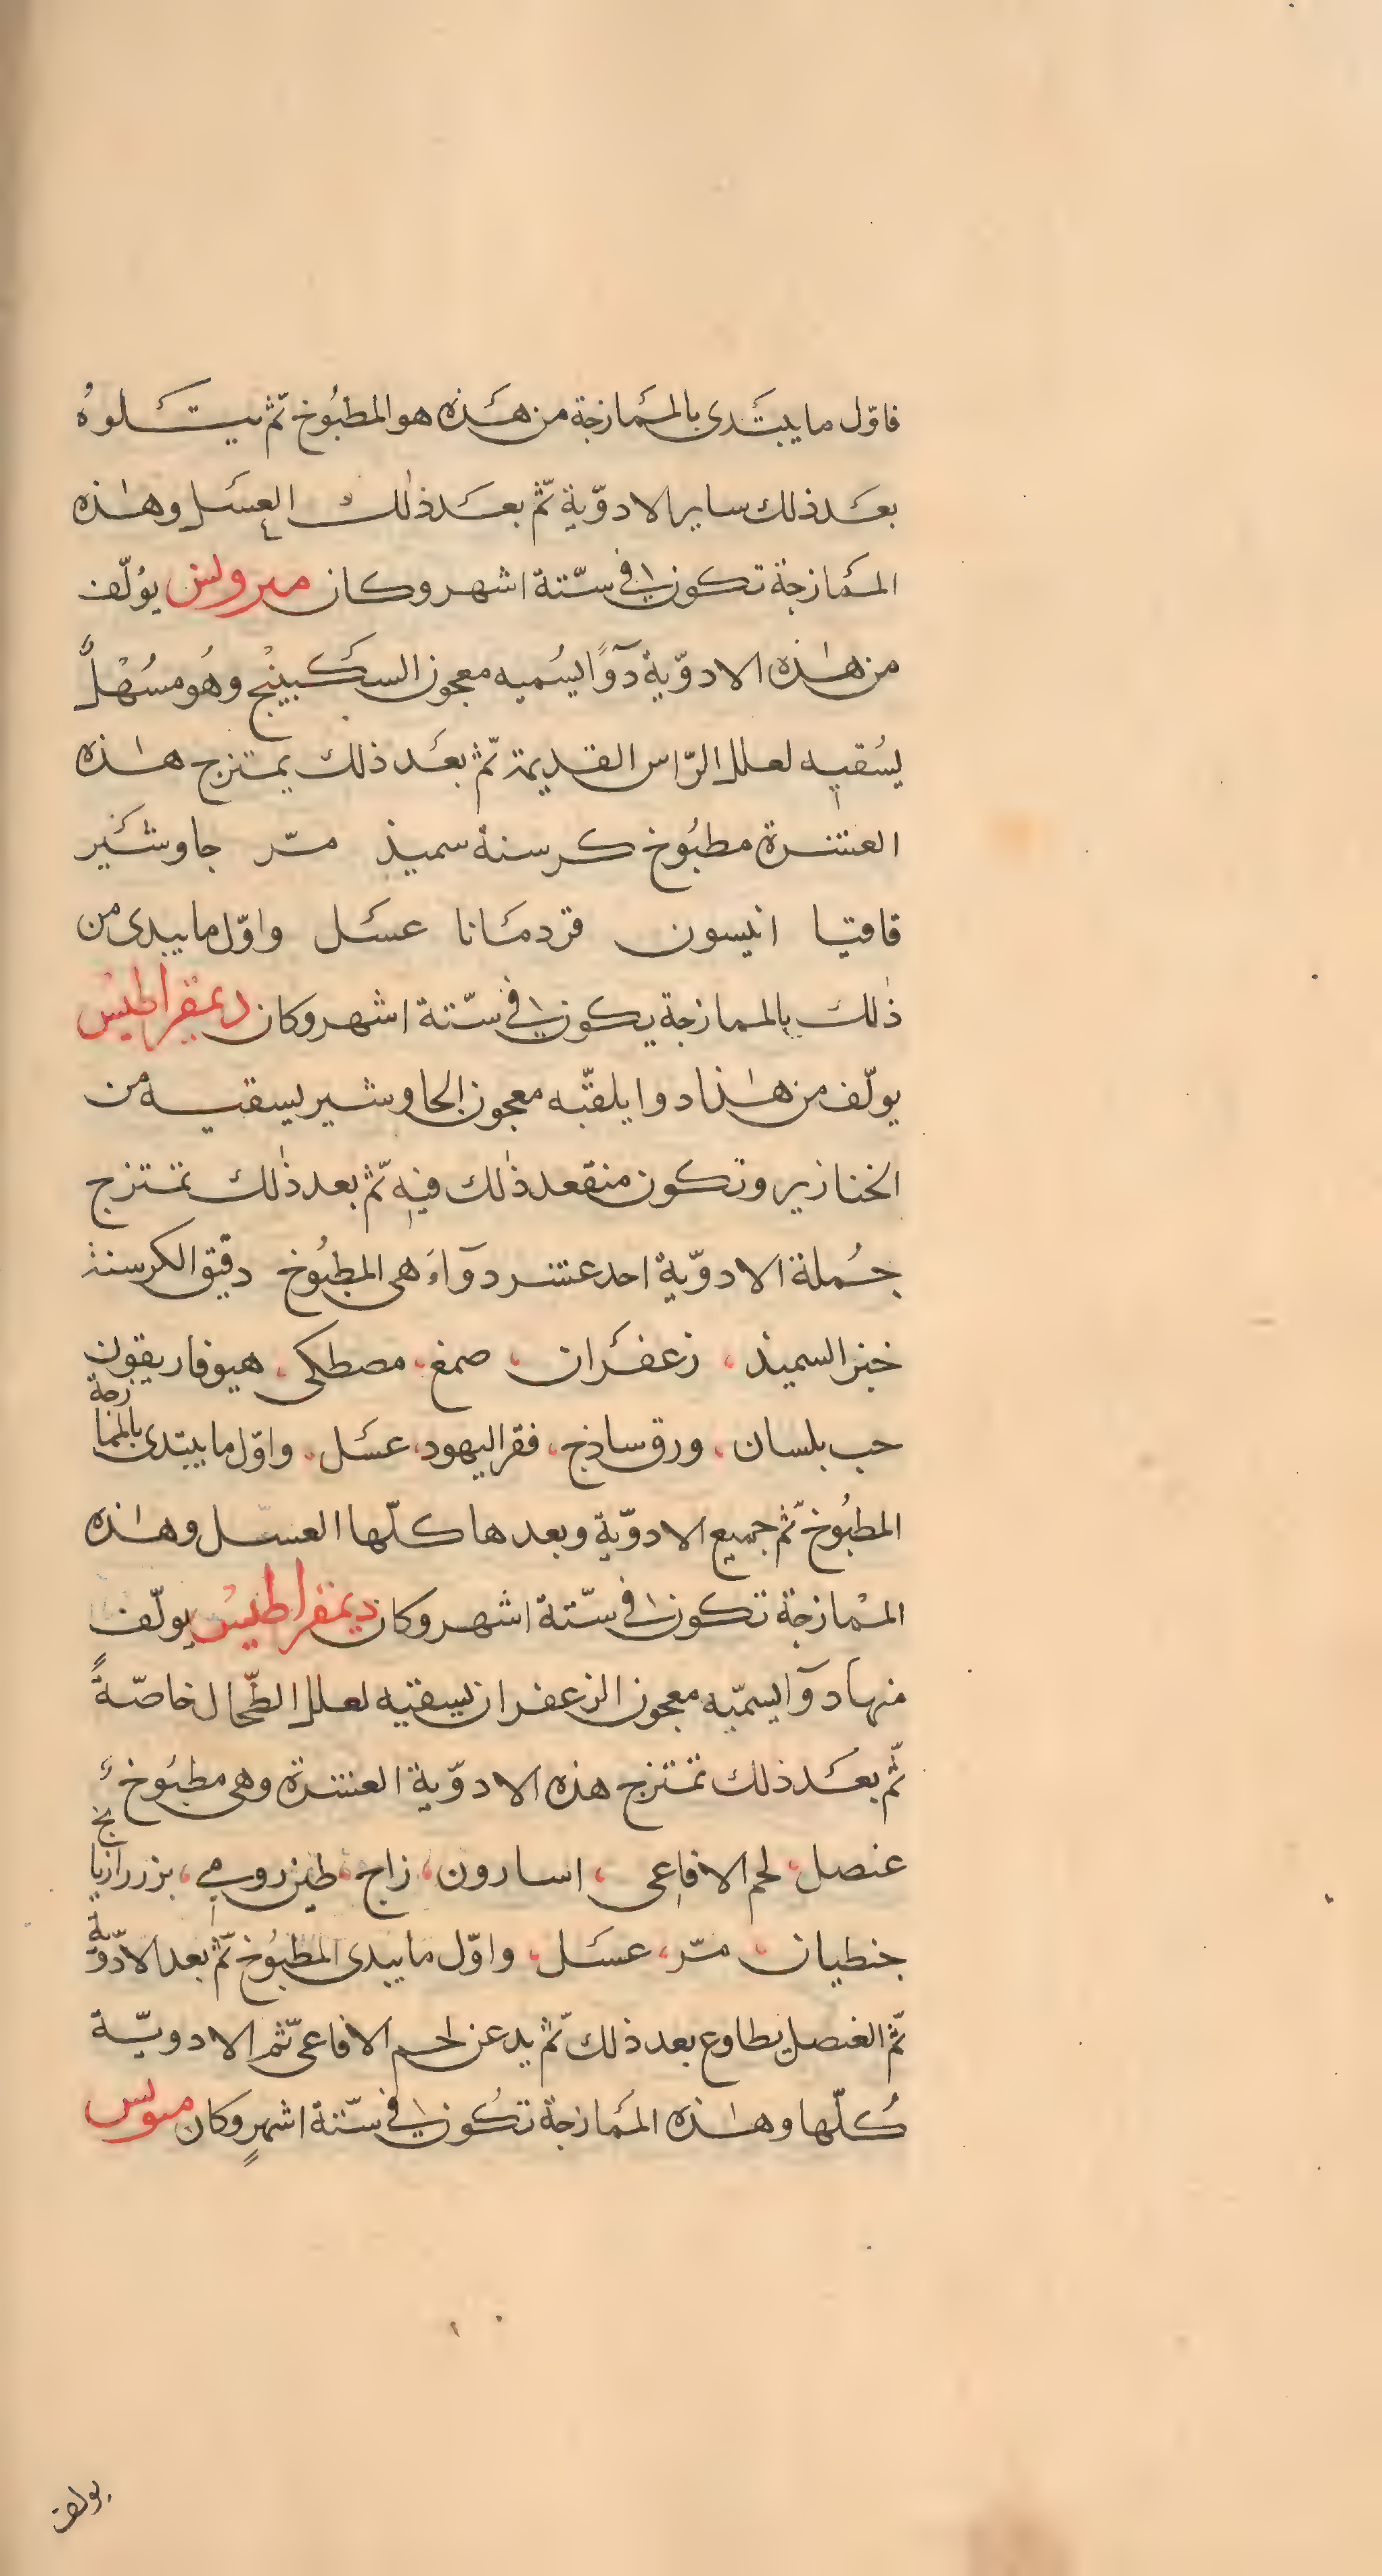 فاوّل ما يبتَدى بالممَازجة من هَذه هو المطبُوخ ثمّ يتَلوهُ
بعَد ذلك ساير الادوّية ثمّ بعَد ذٰلك العسَل وهٰذه
الممَازجة تكون في ستّة اشهر وكان ميرولس يؤلّف
من هٰذه الادوّية دوآً يسُميه معجون السكَبينْج وهُو مسُهْلٌ
يسُقيه لعلل الرّاس القديمة ثمّ بعَد ذلك يمتزج هٰذه
العشرة مطبُوخ كرسنة سميذ مرّ جاوشَير
قاقيا انيسون قردمَانا عسَل واوّل ما يبدى من
ذٰلك بالممازجة يكون في ستّة اشهر وكان ديمقراطيس
يولّف من هٰذا دوا يلقّبه معجون الجاوشير يسقيه من
الخنازير وتكون منقعد ذٰلك فيه ثمّ بعد ذٰلك تمتزج
جُملة الادوّية احد عشر دوآءَ هى المطبُوخ دقيق الكرسنة
خبز السميذ، زعفَران، صمغ، مصطكى، هيوفاريقون
حب بلسان، ورق ساذج، فقر اليهود، عسَل، واوّل ما يبتدى بالممازجة
المطبُوخ ثمّ جميع الادوّية وبعدها كلّها العسّل وهٰذه
الممْازجة تكون في ستّة اشهر وكان ديمقراطيس يولّف
منها دوآ يسميّه معجون الزعفران يسقيه لعلل الطّحال خاصّةً
ثمّ بعَد ذلك تمتزج هذه الادوّية العشرة وهى مطبُوخ
عنصل، لحم الافاعى، اسارون، زاج، طين رومي، بزر رازيانج
جنطيان، مرّ، عسَل، واوّل ما يبدى المطبُوخ ثمّ بعد الادّوية
ثمّ الغنصل يطاوع بعد ذلك ثمّ يدعن لحم الافاعى ثمّ الادويّة
كُلّها وهٰذه الممَازجة تكُون في ستّة اشهرٍ وكان
يولف